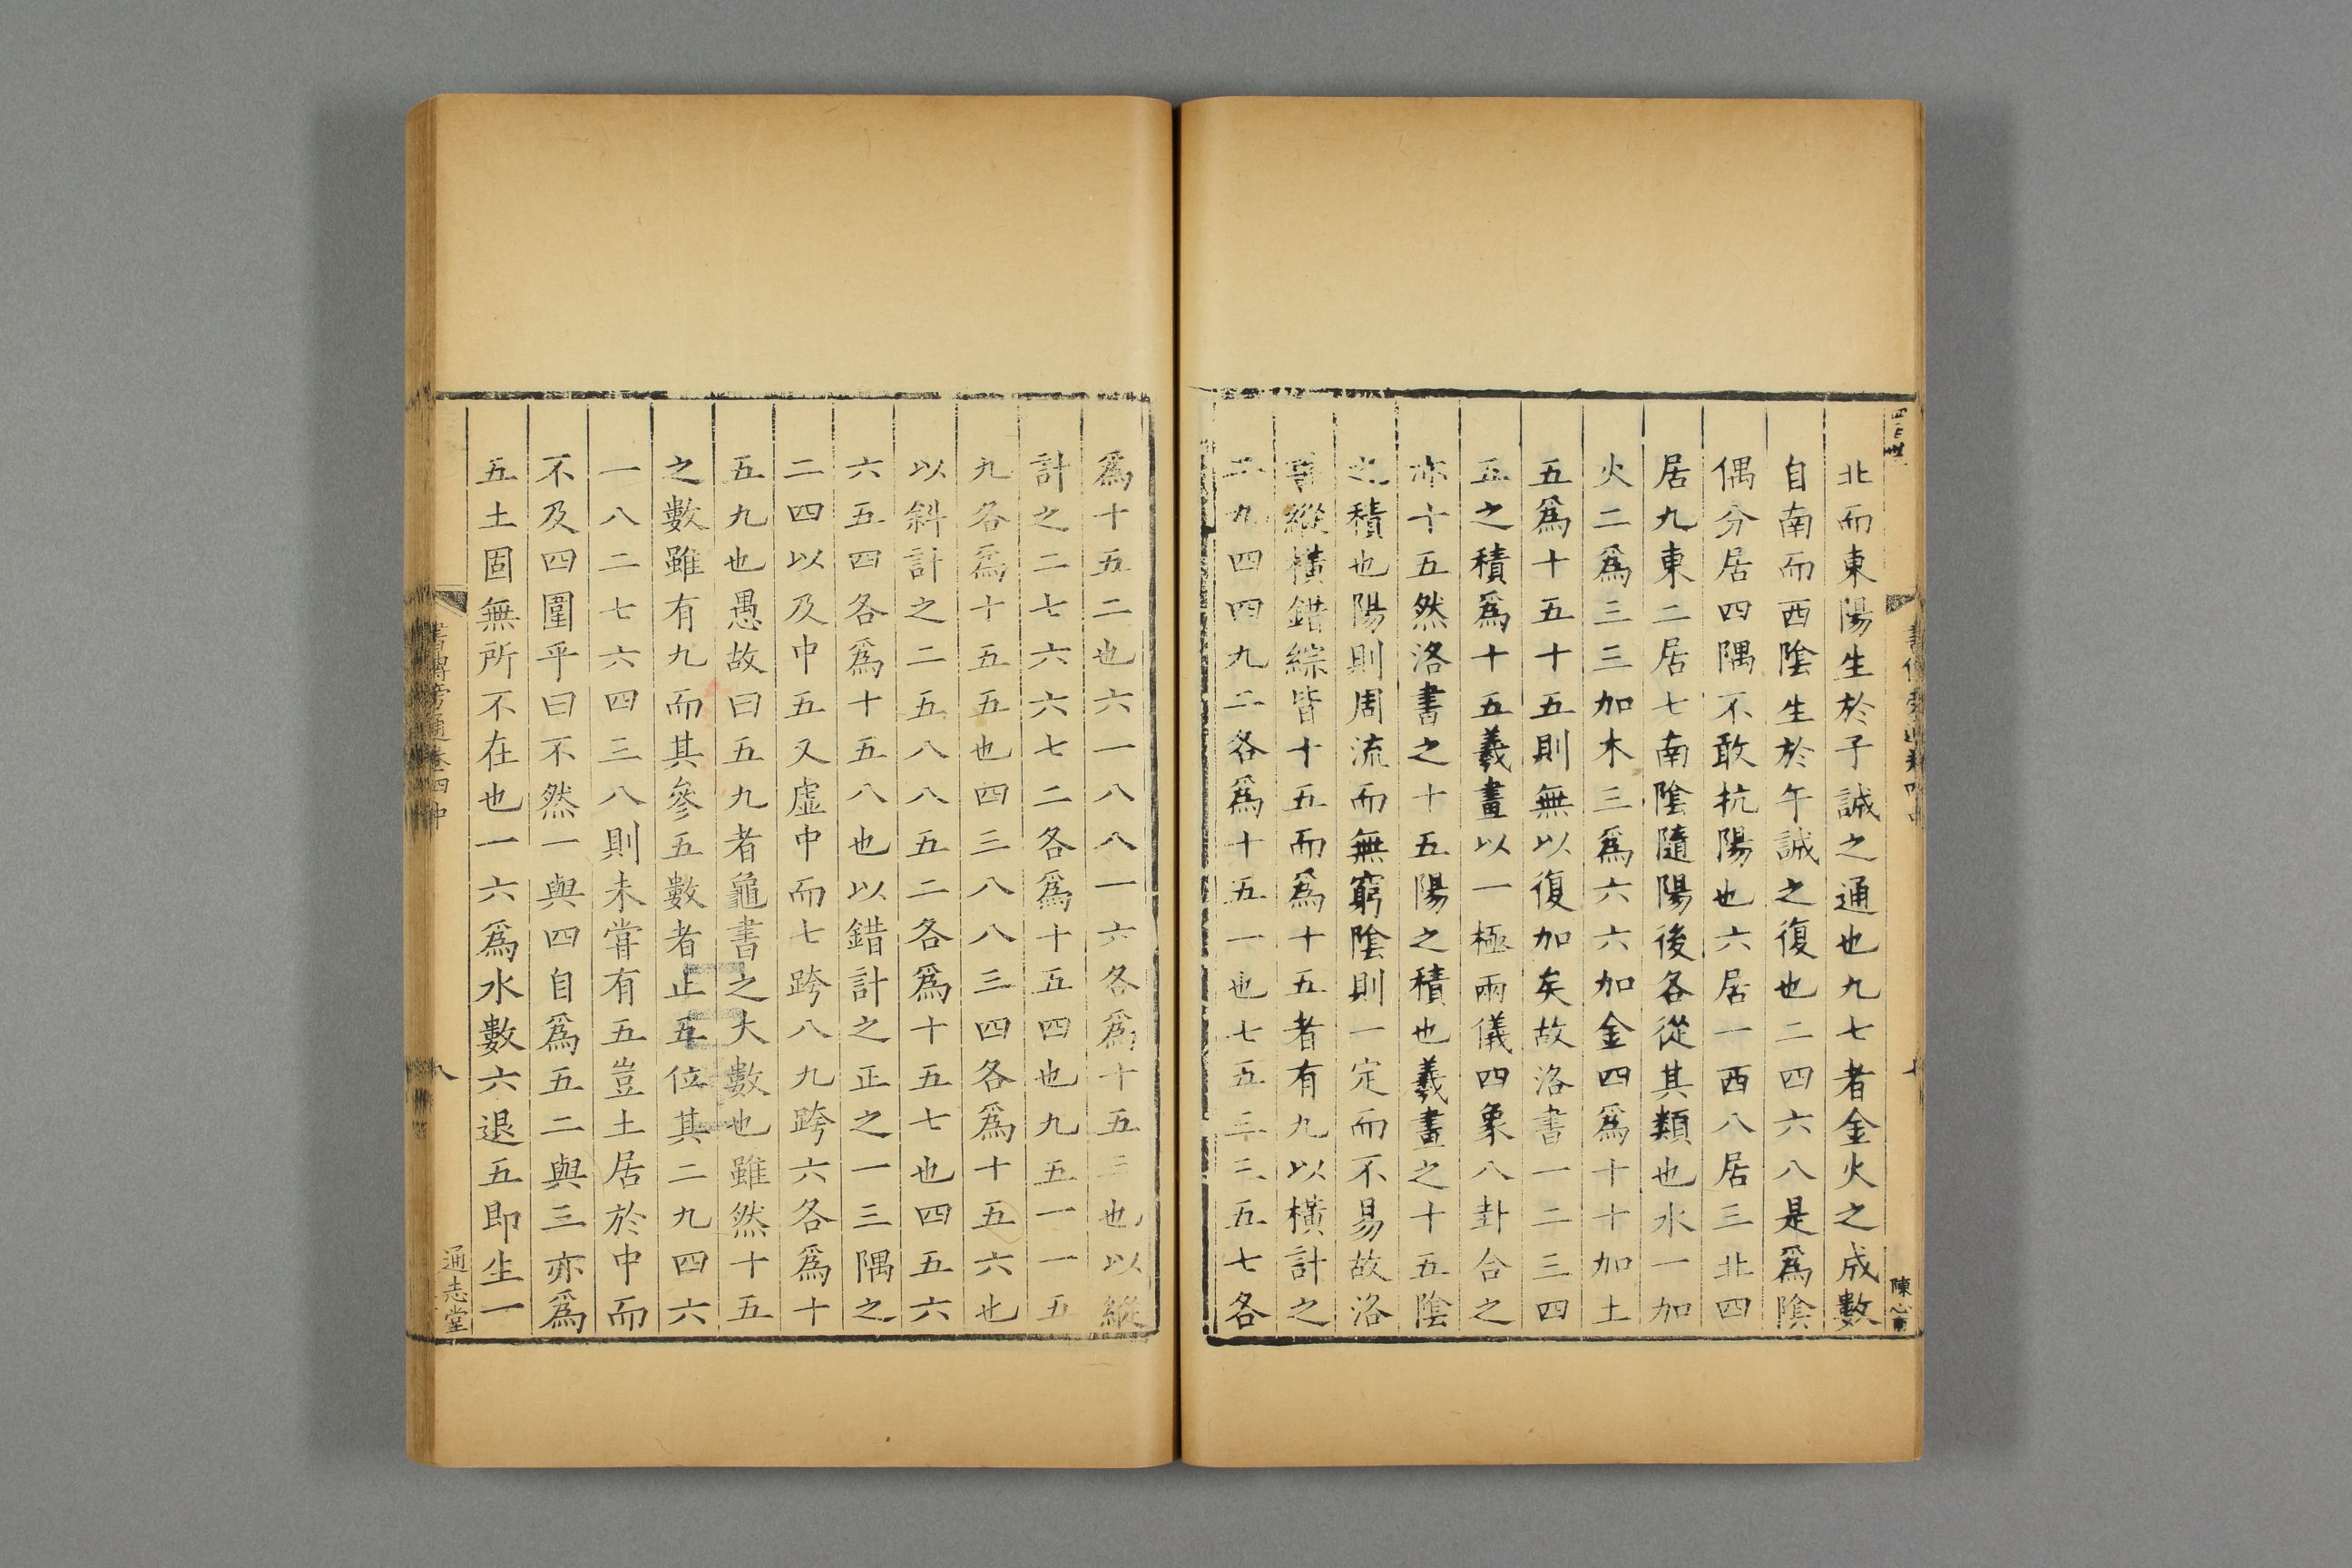 北而東陽生於子誠之通也九七者金火之成數
自南而西陰生於午誠之復也二四六八是爲陰
偶分居四隅不敢抗陽也六居一西八居三北四
居九東二居七南陰隨陽後各從其類也水一加
火二爲三三加木三爲六六加金四爲十十加土
五爲十五十五則無以復加矣故洛書一二三四
五之積爲十五羲畫以一極兩儀四象八卦合之
亦十五然洛書之十五陽之積也羲畫之十五陰
之積也陽則周流而無窮陰則一定而不易故洛
書縱橫錯綜皆十五而爲十五者有九以橫計之
二九四四九二各爲十五一也七五三三五七各
爲十五二也六一八八一六各爲十五三也以縱
計之二七六六七二各爲十五四也九五一一五
九各爲十五五也四三八八三四各爲十五六也
以斜計之二五八八五二各爲十五七也四五六
六五四各爲十五八也以錯計之正之一三隅之
二四以及中五又虛中而七跨八九跨六各爲十
五九也愚故曰五九者龜書之大數也雖然十五
之數雖有九而其參五數者正五位其二九四六
一八二七六四三八則未甞有五豈土居於中而
不及四圍乎曰不然一與四自爲五二與三亦爲
五土固無所不在也一六爲水數六退五即生一
書傳旁通卷四中
八
通志堂